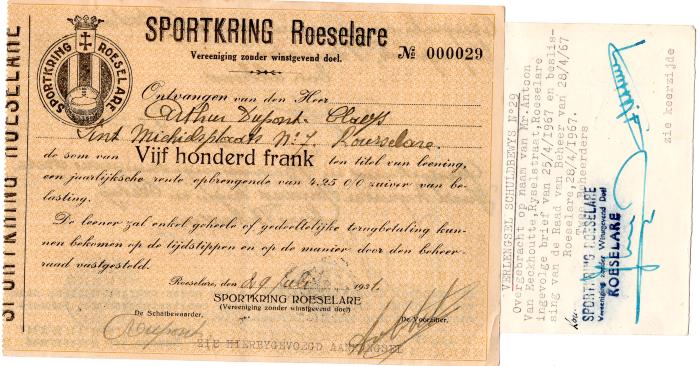 SPORTKRING ROESELARE
SPORTKRING ROESELARE
SPORTKRING Roeselare
Vereeniging zonder winstgevend doel.
№ 000029
Ontvangen van den Heer
Arthur Dupont - Claeys
Sint Michielsplaats Nr 7. Rousselare.
de som van Vijf honderd frank ten titel van leening,
een jaarlijksche rente opbrengende van 4.25 0/0 zuiver van be-
lasting.
De leener zal enkel geheele of gedeeltelijke terugbetaling kun-
nen bekomen op de tijdstippen en op de manier door den beheer-
raad vastgesteld.
Roeselare, den 29 Juli 1931.
SPORTKRING ROESELARE
(Vereeniging zonder winstgevend doel)
De Schatbewaarder.
De Voorzitter.
ADupont
ZIE HIERBYGEVOEGD AANHENGSEL
VERLENGSEL SCHULDBEWYS N°29
Overgebracht op naam van Mr.Antoon
Van Eeckhoutte,Ryselstraat,Roeselare
ingevolge brief van 25/4/1967 en beslis-
sing van de Raad van Beheer van 28/4/67
Roeselare,28/4/1967.
Twee Beheerders
SPORTKRING ROESELARE
Vereeniging zonder Winstgevend Doel
ROESELARE
zie keerzijde